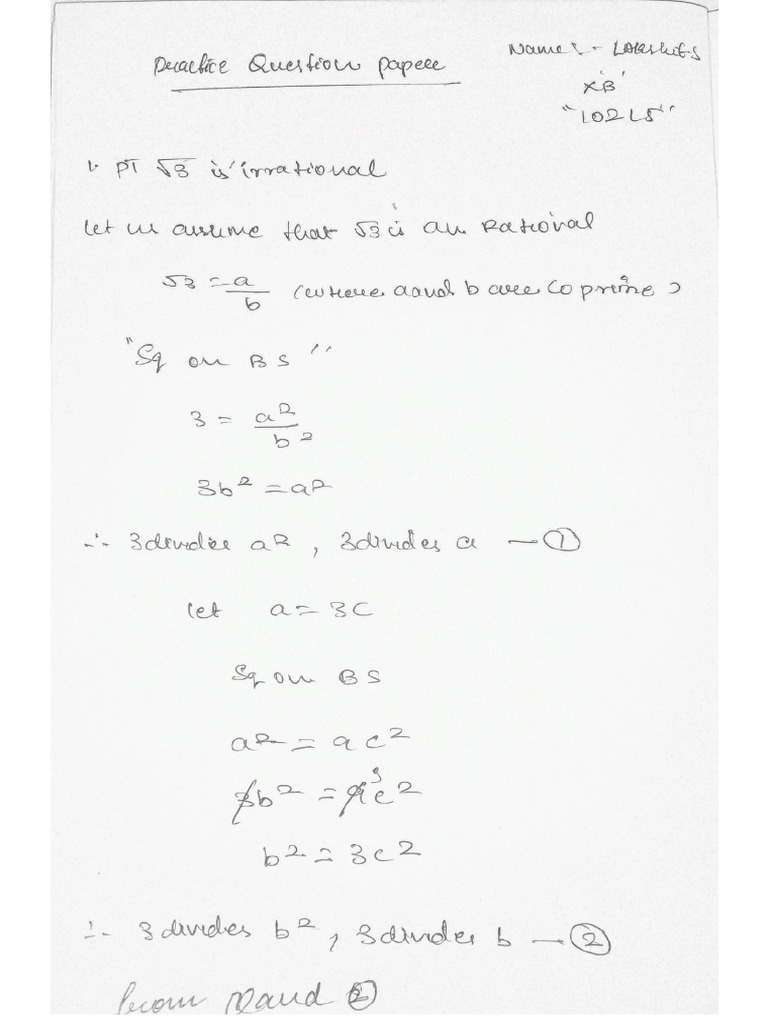 Practice Question paper
Name :- Lakshit S
XB
"102L5"
1. PT √3 is irrational
let us assume that √3 is an Rational
√3 = a/b (where a and b are co prime)
"Sq on BS"
3 = a²/b²
3b² = a²
∴ 3 divides a², 3 divides a — ①
let a = 3C
Sq on BS
a² = 9c²
3b² = 9c² 3
b² = 3c²
∴ 3 divides b², 3 divides b — ②
from ① and ②